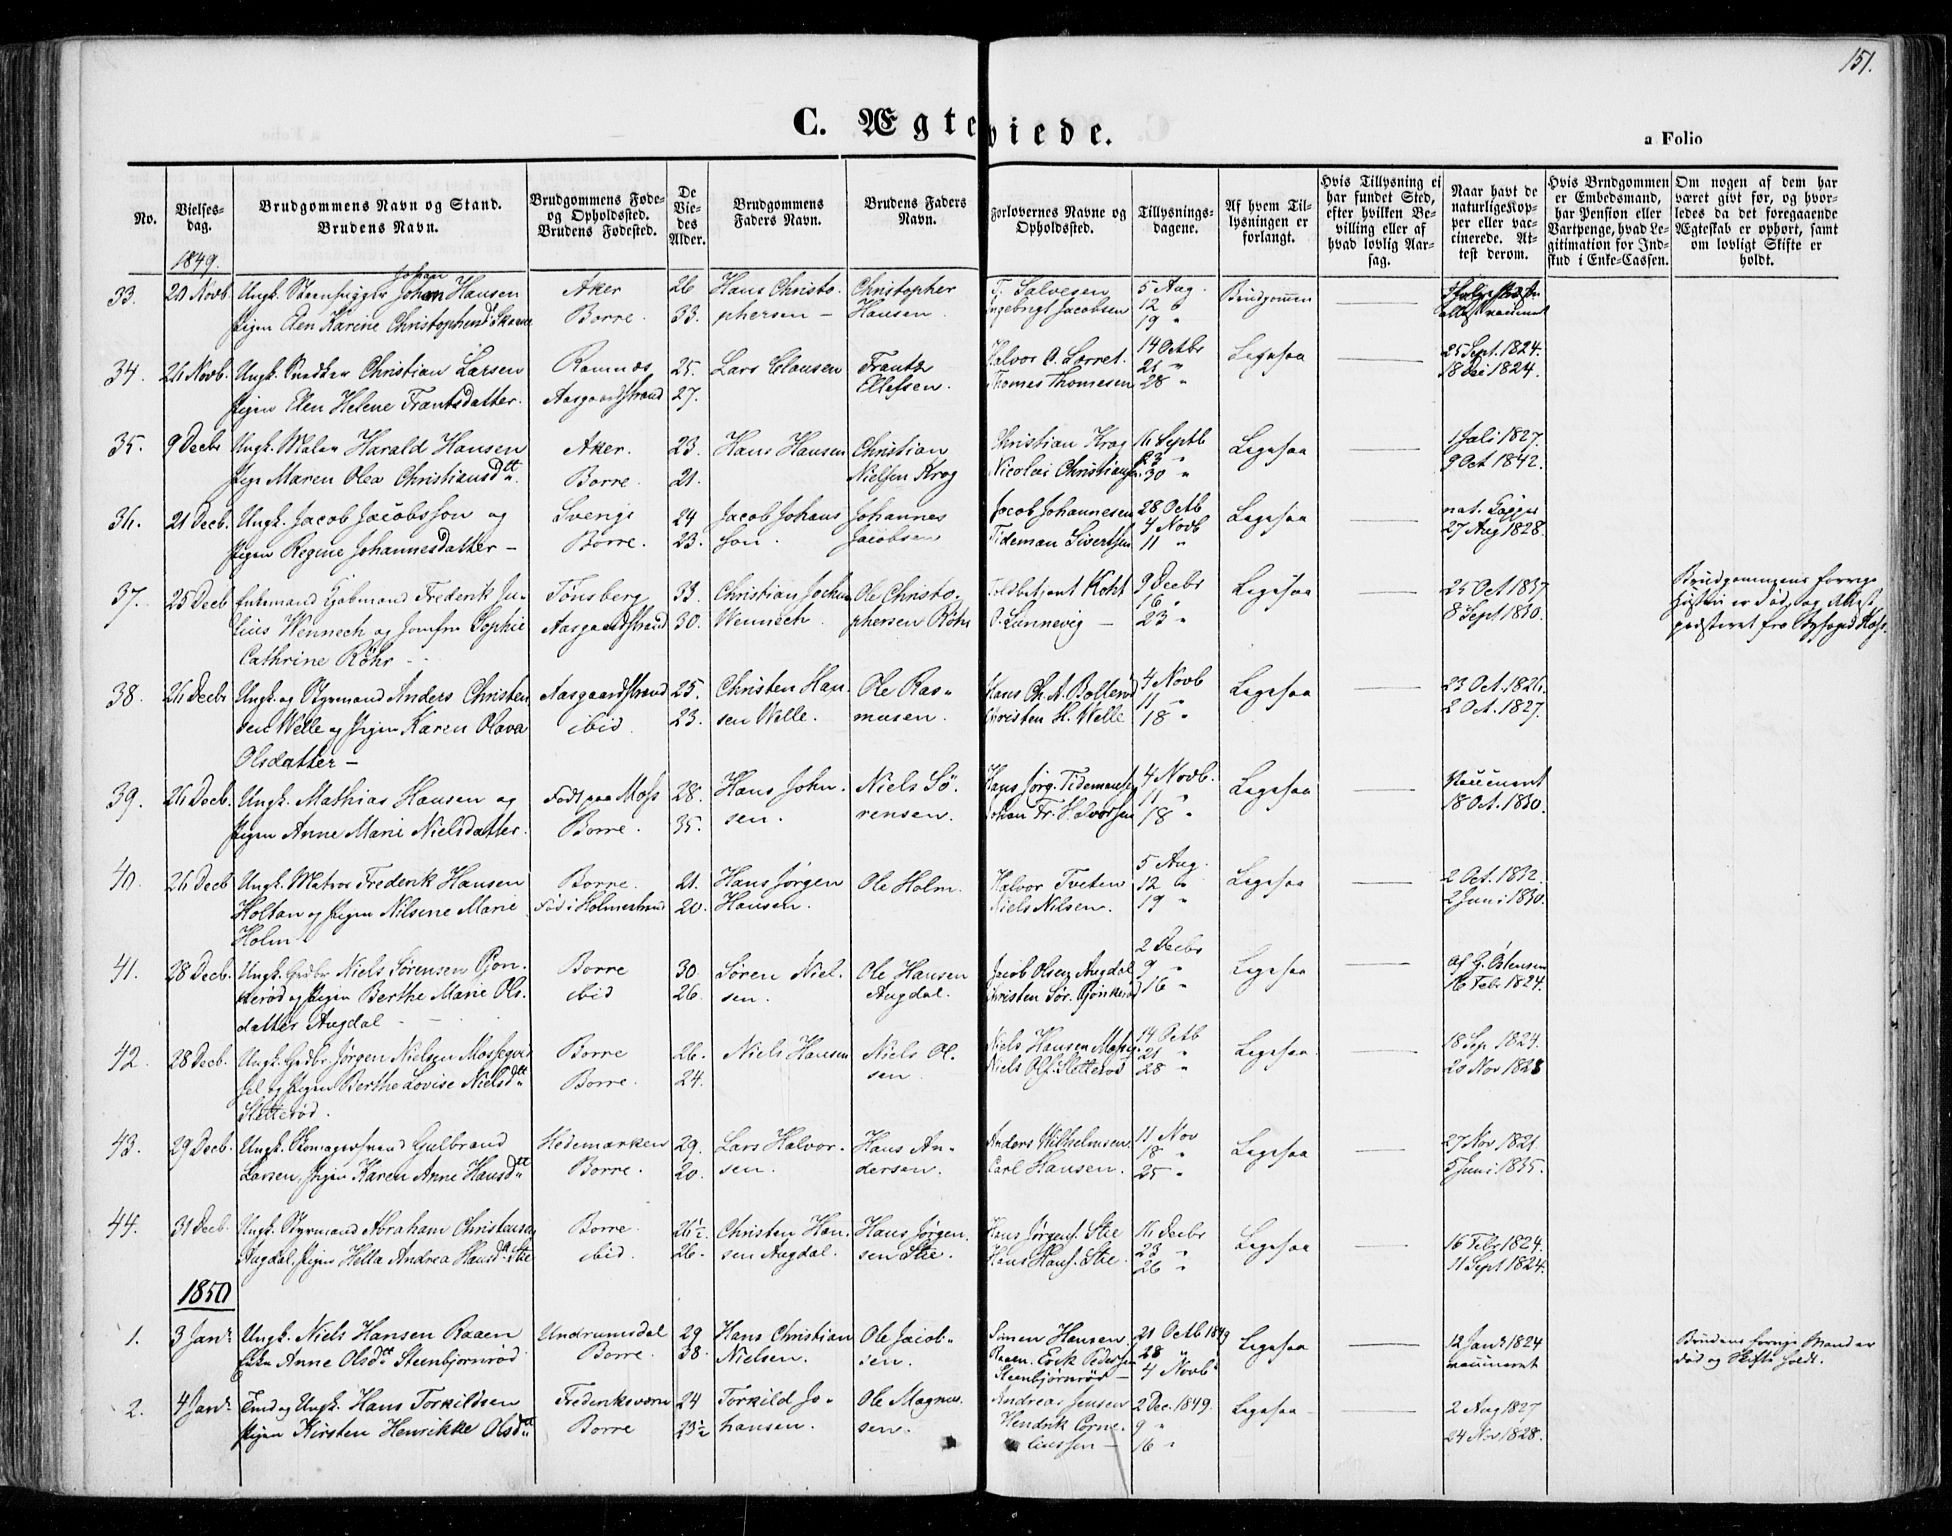 151.
C. Ægteviede.
a Folio
No.
Vielses-dag.
Brudgommens Navn og Stand. Brudens Navn.
Brudgommens Føde- og Opholdssted. Brudens Fødested.
De Viedes Alder.
Brudgommens Faders Navn.
Brudens Faders Navn.
Forlovernes Navne og Opholdssted.
Tillysnings-dagene.
Af hvem Tillysningen er forlangt.
Hvis Tillysning ei har fundet Sted, efter hvilken Bevilling eller af hvad lovlig Aarsag.
Naar havt de naturlige Kopper eller vaccinerede. Attest derom.
Hvis Brudgommen er Embedsmand, har Pension eller Vartpenge, hvad Legitimation for Indskud i Enke-Cassen.
Om nogen af dem har været givt før, og hvorledes da det foregaaende Ægteskab er ophørt, samt om lovligt Skifte er holdt.
1849.
33. 20 Novb. Ungk. Johan Hansen Aker 26 Hans Christo- Christopher T. Salvesen 5 Aug. Brudgommen
Pigen Elen Karine Christophersd. Borre. 33. phersen – Hansen. Ingebrigt Jacobsen 12 " 19 "
34. 26 Novb. Ungk. Snedker Christian Larsen Ramnæs 25. Lars Clausen Frantz Halvor O. Lørret. 14 Octbr Ligesaa 25 Sept. 1824.
Pigen Elen Helene Frantsdatter. Aasgaardstrand 27. Ellefsen. Thomas Thomesen 21 " 28 " 18 Dec 1824.
35. 9 Decbr Ungk. Maler Harald Hansen Aker. 23. Hans Hansen Christian Christian Krog 16 Septb Ligesaa 1 Juli 1827.
Pige Maren Olea Christiansdtt. Borre. 21. Nielsen Krog Nicolai Christiansen 23 " 30 " 9 Oct 1842.
36. 21 Decb. Ungk. Jacob Jacobsson og 24 Jacob Johans Johannes Jacob Johannesen 28 Octb Ligesaa nat. Kopper
Pigen Regine Johannesdatter – Borre. 23. son. Jacobsen Tideman Sivertsen 4 Novb 11 " 27 Aug 1828.
37. 25 Decb Enkemand Kjøbmand Frederik Ju- Tønsberg 33. Christian Jochum Ole Christo- Toldbetjent Koht 9 Decbr Ligesaa 25 Oct 1837 Brudgommens forrige
lius Wennech og Jomfru Sophie Aasgaardstrand 30. Wennech. phersen Röhr O. Lunnevig – 16 " 23 " 8 Sept 1830. Hustru er død, og Attest
Cathrine Röhr – præsteret fra Byfoged
38. 26 Decbr Ungk. og Styrmand Anders Christen Aasgaardstrand 25. Christen Han- Ole Ras- Hans Ch. A. Bollerød 4 Novb Ligesaa 23 Oct. 1826.
sen Welle og Pigen Karen Olava ibid. 23. sen Welle. musen. Christen H. Welle 11 " 18 " 2 Oct. 1827.
Olsdatter –
39. 26 Decb. Ungk. Mathias Hansen og Født paa Moss 28. Hans John- Niels Sö- Hans Jörg. Tidemansen 4 Novb. Ligesaa Vaccineret
Pigen Anne Marie Nielsdatter. Borre. 35. sen. rensen. Johan Fr. Halvorsen 11 " 18 " 18 Oct. 1830.
40. 26 Decb Ungk. Matros Frederik Hansen Borre. 21. Hans Jörgen Ole Holm. Halvor Tveten 5 Aug. Ligesaa 2 Oct. 1832.
Holtan og Pigen Nilsine Marie Fød i Holmestrand 20. Hansen. Niels Nilsen. 12 " 19 " 2 Juni 1830.
Holm
41. 28 Decb. Ungk. Grdbr Niels Sørensen Pjon- Borre 30. Søren Niel- Ole Hansen Jacob Olsen Augdal 2 Decbr Ligesaa Af G. Östensen
kerød og Pigen Berthe Marie Ols- ibid 26. sen. Augdal. Christen Sør. Pjönkerød 9 " 16 " 16 Febr 1824.
datter Augdal –
42. 28 Decb. Ungk. Grdbr Jørgen Nielsen Borre 26. Niels Hansen Niels Ol- Niels Hansen 14 Octb Ligesaa 18 Sep 1824.
og Pigen Berthe Lovise Nielsdtt Borre. 24. sen. Niels Ols. Sletterød 21 " 28 " 20 Nov 1828
Sletterød.
43. 29 Decb. Ungk. Skomagersvend Gulbrand Hedemarken 29. Lars Halvor- Hans An- Anders Wilhelmsen 11 Nov Ligesaa 27 Nov. 1821.
Larsen, Pigen Karen Anne Hansdtt Borre. 20. sen. dersen. Carl Hansen. 18 " 25 " 5 Juni 1835.
44. 31 Decb. Ungk. Styrmand Abraham Christensen Borre. 26½ Christen Han- Hans Jörgen- Hans Jørgens. Stie 16 Decbr Ligesaa 16 Febr 1824.
Augdal, Pigen Hella Andrea Hansdtt Stie ibid. 26. sen Augdal. sen Stie. Hans Hans. Stie. 23 " 26 " 11 Sept 1824.
1850
1. 3 Janr. Ungk. Niels Hansen Raaen Undrumsdal 29 Hans Christian Ole Jacob- Simen Hansen 21 Octb 1849 Ligesaa 12 Janr 1824 Brudens forrige Mand er
Enke Anne Olsdtt Steenbjörnrød Borre. 38. Nielsen. sen. Raaen. Erik Pedersen 28 " vaccineret død og Skifte holdt.
Steenbjörnrød – 4 Novb
2. 4 Janr. Ungk. Hans Torkildsen Frederiksværn 24 Torkild Jo- Ole Magnus- Andreas Jensen 2 Dec. 1849. Ligesaa 2 Aug 1827
Pigen Kirsten Henrikke Olsdtt Borre 23½ hansen. sen. Hendrik Corne- 9 " 24 Nov 1828.
liussen – 16 "